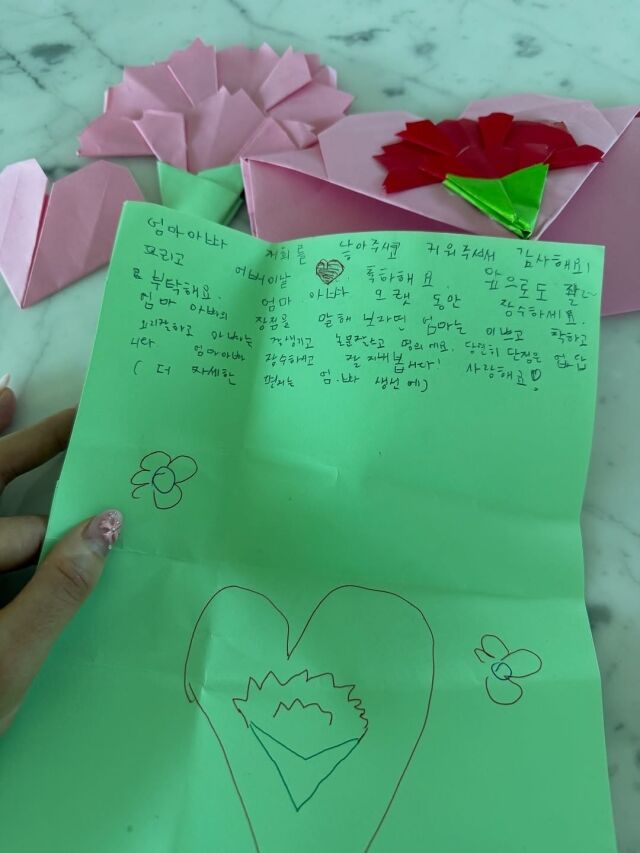 엄마아빠 저희를 낳아주시고 키워주셔서 감사해요!
그리고 어버이날 축하해요. 앞으로도 잘~
부탁해요. 엄마 아빠 오랫 동안 장수하세요.
엄마 아빠의 장점을 말해 보자면 엄마는 이쁘고 착하고
요리잘하고 아빠는 잘생기고 논문잘쓰고 명의예요. 당연히 단점은 없답
니다 엄마아빠 장수하고 잘 지내봅니다! 사랑해요♡
(더 자세한 편지는 엄.빠 생신에)